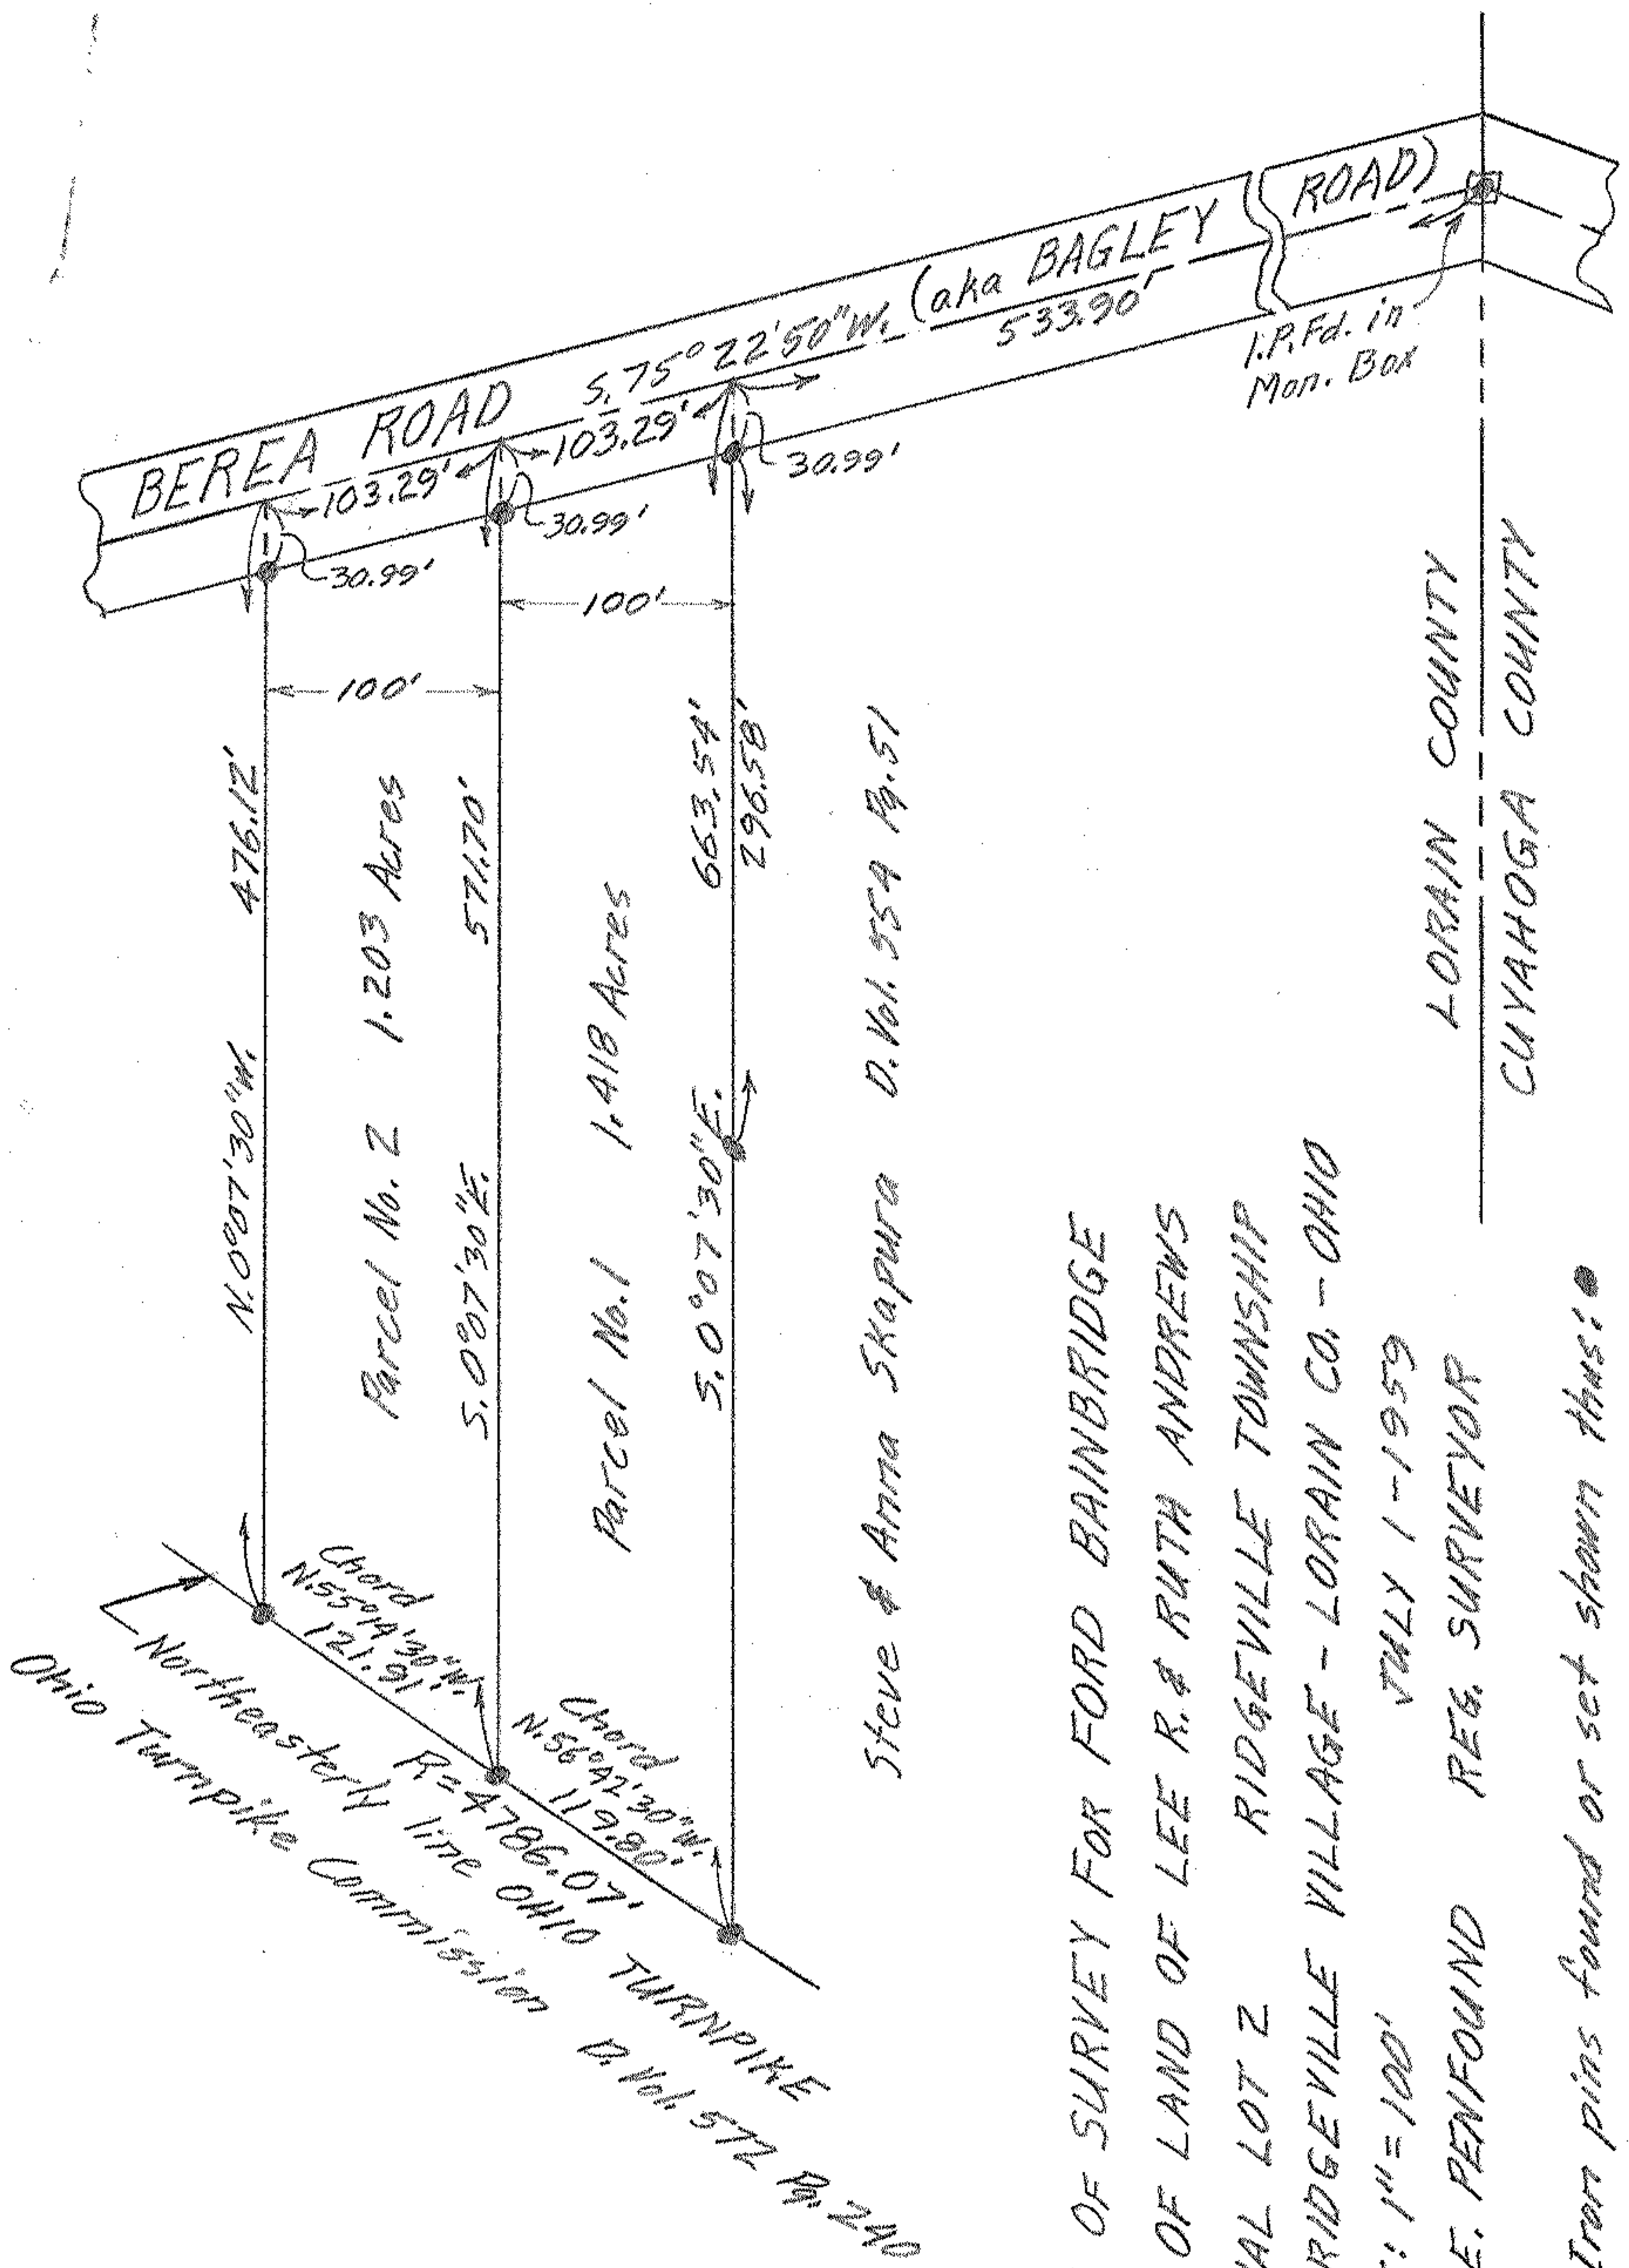 BEREA ROAD
S. 75° 22' 50" W.
(aka BAGLEY
ROAD)
533.90'
103.29'
103.29'
30.99'
30.99'
30.99'
I.P. Fd. in
Mon. Box
100'
100'
N. 0°07'30" W. 476.12'
Parcel No. 2 1.203 Acres
S. 0°07'30" E. 571.70'
Parcel No. 1 1.418 Acres
S. 0°07'30" E. 663.54'
296.58'
Steve & Anna Skapura D. Vol. 554 Pg. 51
LORAIN COUNTY
CUYAHOGA COUNTY
Chord
N. 55°14'30" W.
121.91'
Chord
N. 56°42'30" W.
119.80'
R = 4786.07'
Northeasterly line OHIO TURNPIKE
Ohio Turnpike Commission D. Vol. 572 Pg. 240
OF SURVEY FOR FORD BAINBRIDGE
OF LAND OF LEE R. & RUTH ANDREWS
AL LOT 2 RIDGEVILLE TOWNSHIP
RIDGEVILLE VILLAGE - LORAIN CO. - OHIO
: 1" = 100' JULY 1 - 1959
E. PENFOUND REG. SURVEYOR
Iron pins found or set shown thus: